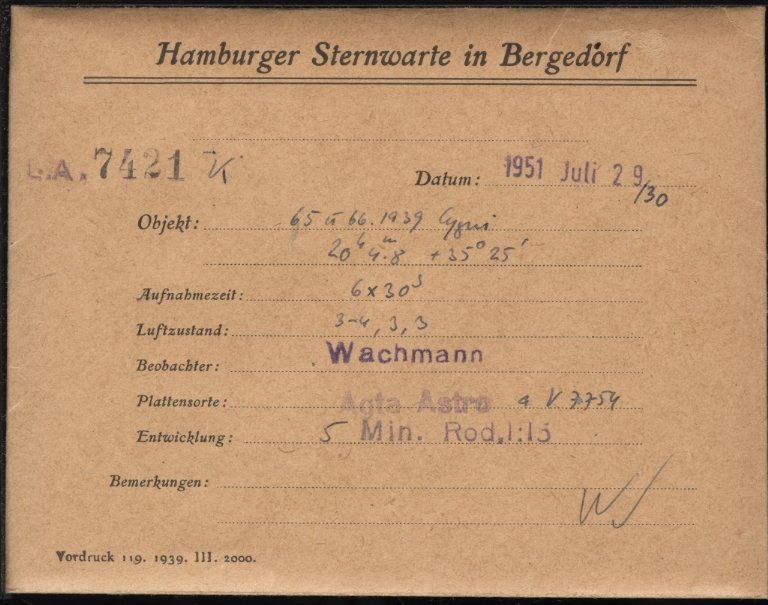 Hamburger Sternwarte in Bergedorf
L.A. 7421 K
Datum: 1951 Juli 29/30
Objekt: 65 u 66.1939 Cygni
20h 4m.8 +35° 25'
Aufnahmezeit: 6x30s
Luftzustand: 3-4, 3, 3
Beobachter: Wachmann
Plattensorte: Agfa Astro a V 7754
Entwicklung: 5 Min. Rod. 1:15
Bemerkungen:
W
Vordruck 119. 1939. III. 2000.